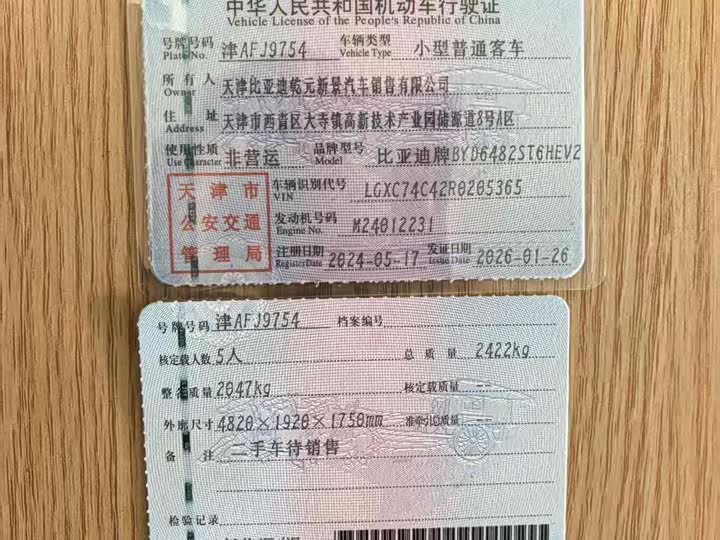 中华人民共和国机动车行驶证
Vehicle License of the People's Republic of China
号牌号码 津AFJ9754 车辆类型 小型普通客车
Plate No. Vehicle Type
所有人 天津比亚迪乾元新景汽车销售有限公司
Owner
住址 天津市西青区大寺镇高新技术产业园储源道8号A区
Address
使用性质 非营运 品牌型号 比亚迪牌BYD6482ST6HEV2
Use Character Model
天津市 车辆识别代号 LGXC74C42R0205365
VIN
公安交通 发动机号码 M24012231
Engine No.
管理局 注册日期 2024-05-17 发证日期 2026-01-26
Register Date Issue Date
号牌号码 津AFJ9754 档案编号
核定载人数 5人 总质量 2422kg
整备质量 2047kg 核定载质量 --
外廓尺寸 4820×1920×1750mm 准牵引总质量 --
备注 二手车待销售
检验记录